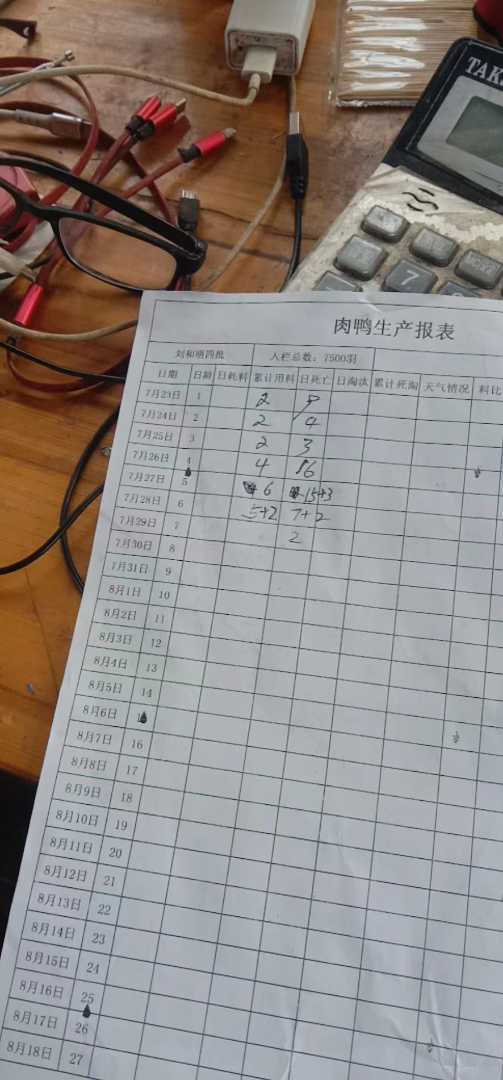 TAK
7
肉鸭生产报表
刘和明四批 入栏总数：7500羽
日期 日龄 日耗料 累计用料 日死亡 日淘汰 累计死淘 天气情况 料比
7月23日 1 2
7月24日 2 2 4
7月25日 3 2 3
7月26日 4 4 16
7月27日 5 6 15+3
7月28日 6 5+2 7+2
7月29日 7 2
7月30日 8
7月31日 9
8月1日 10
8月2日 11
8月3日 12
8月4日 13
8月5日 14
8月6日
8月7日 16
8月8日 17
8月9日 18
8月10日 19
8月11日 20
8月12日 21
8月13日 22
8月14日 23
8月15日 24
8月16日 25
8月17日 26
8月18日 27